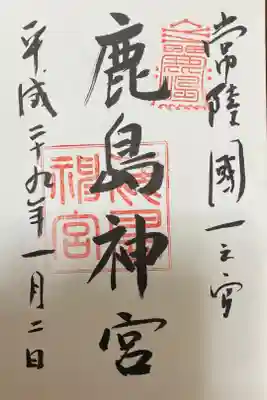 常陸國一之宮
鹿島神宮
平成二十九年一月二日